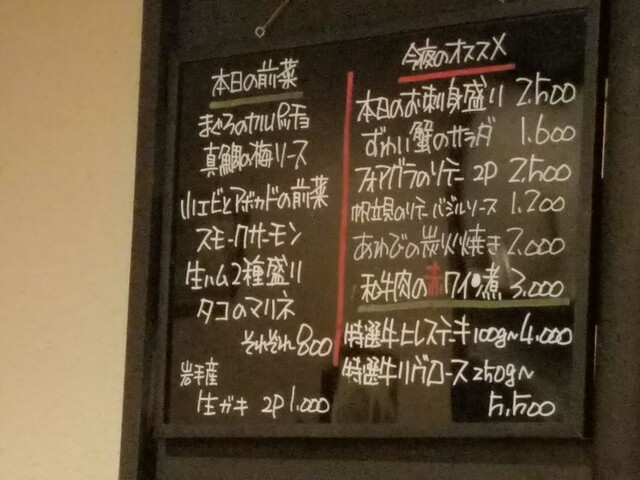 本日の前菜
まぐろのカルパッチョ
真鯛の梅ソース
小エビとアボカドの前菜
スモークサーモン
生ハム2種盛り
タコのマリネ
それぞれ800
岩手産
生ガキ 2P 1.000
今夜のオススメ
本日のお刺身盛り 2.500
ずわい蟹のサラダ 1.600
フォアグラのソテー 2P 2.500
帆立貝のソテーバジルソース 1.200
あわびの炭火焼き 2.000
和牛肉の赤ワイン煮 3.000
特選牛ヒレステーキ 100g~ 4.000
特選牛リヴロース 250g~
5.500